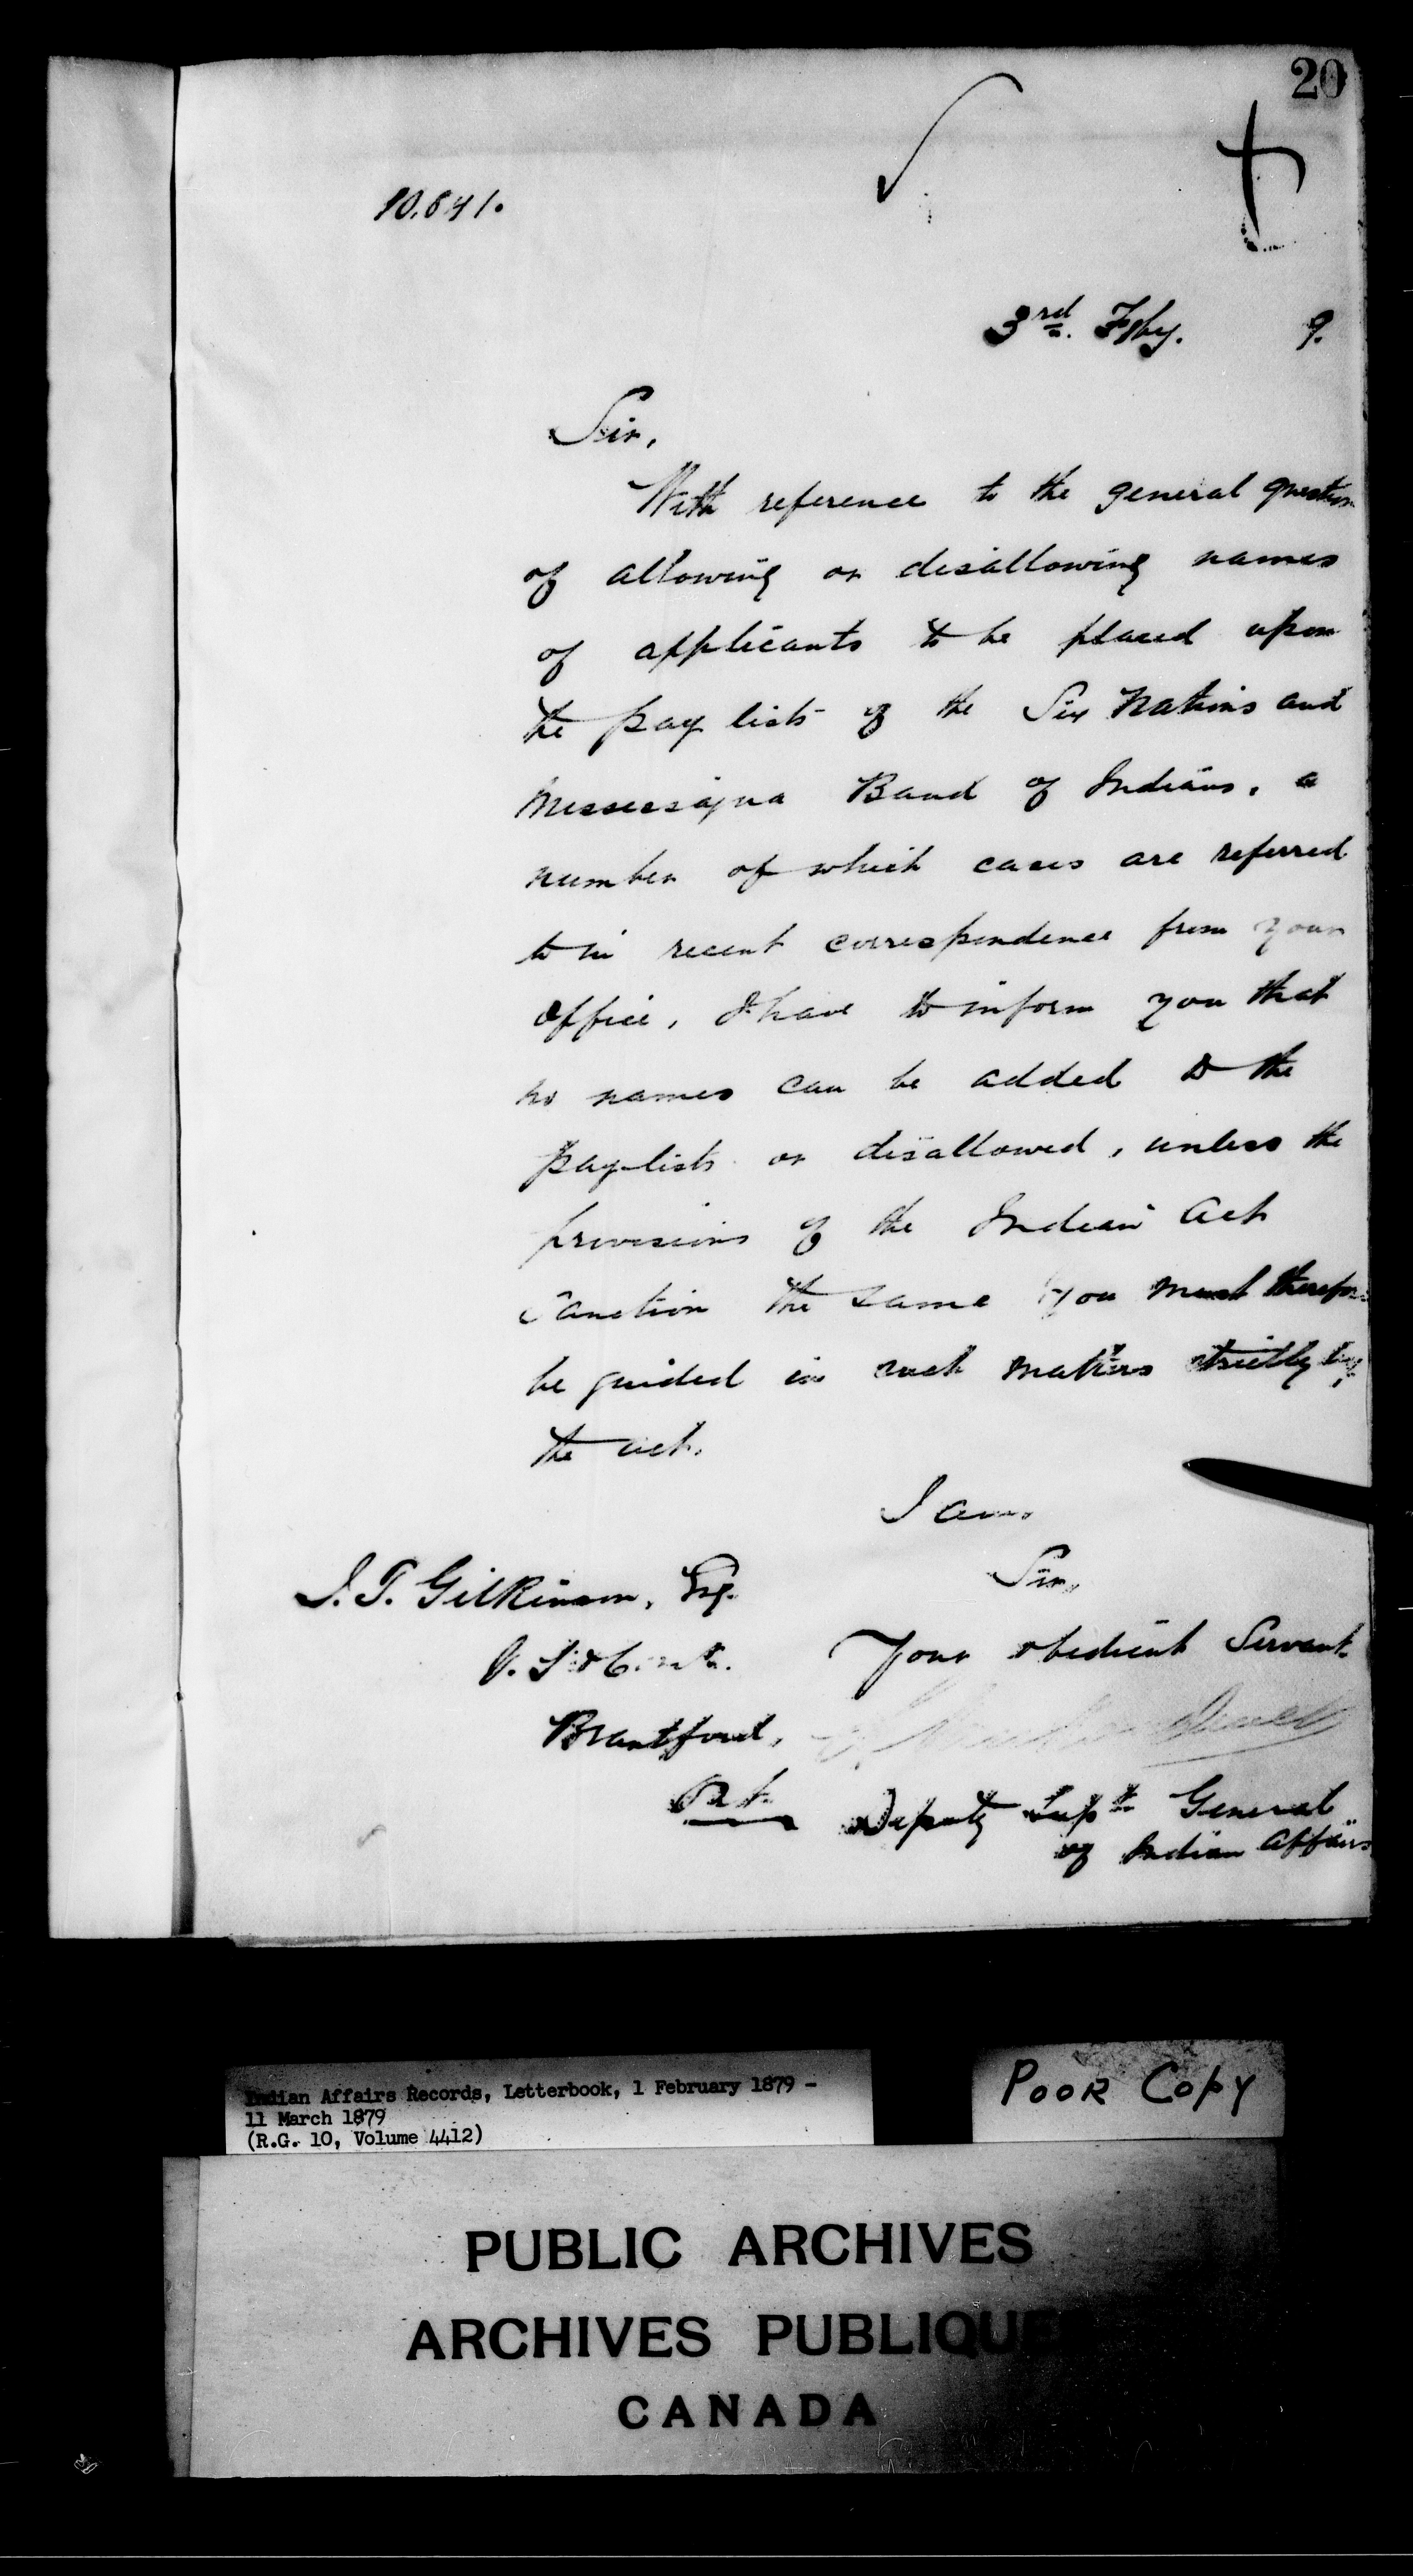 20
10.641.
3rd. Feby. 9.
Sir,
With reference to the general question
of allowing or disallowing names
of applicants to be placed upon
the pay lists of the Six Nations and
Mississagua Band of Indians, a
number of which cases are referred
to in recent correspondence from your
Office, I have to inform you that
no names can be added to the
pay-lists or disallowed, unless the
provisions of the Indian Act
sanction the same you must therefore
be guided in such matters strictly by
the act.
I am,
Sir,
J. T. Gilkinson, Esq.
Your obedient Servant.
Brantford,
Ont.
Deputy Supt. General
of Indian Affairs
Indian Affairs Records, Letterbook, 1 February 1879 -
11 March 1879
(R.G. 10, Volume 4412)
POOR COPY
PUBLIC ARCHIVES
ARCHIVES PUBLIQUE
CANADA